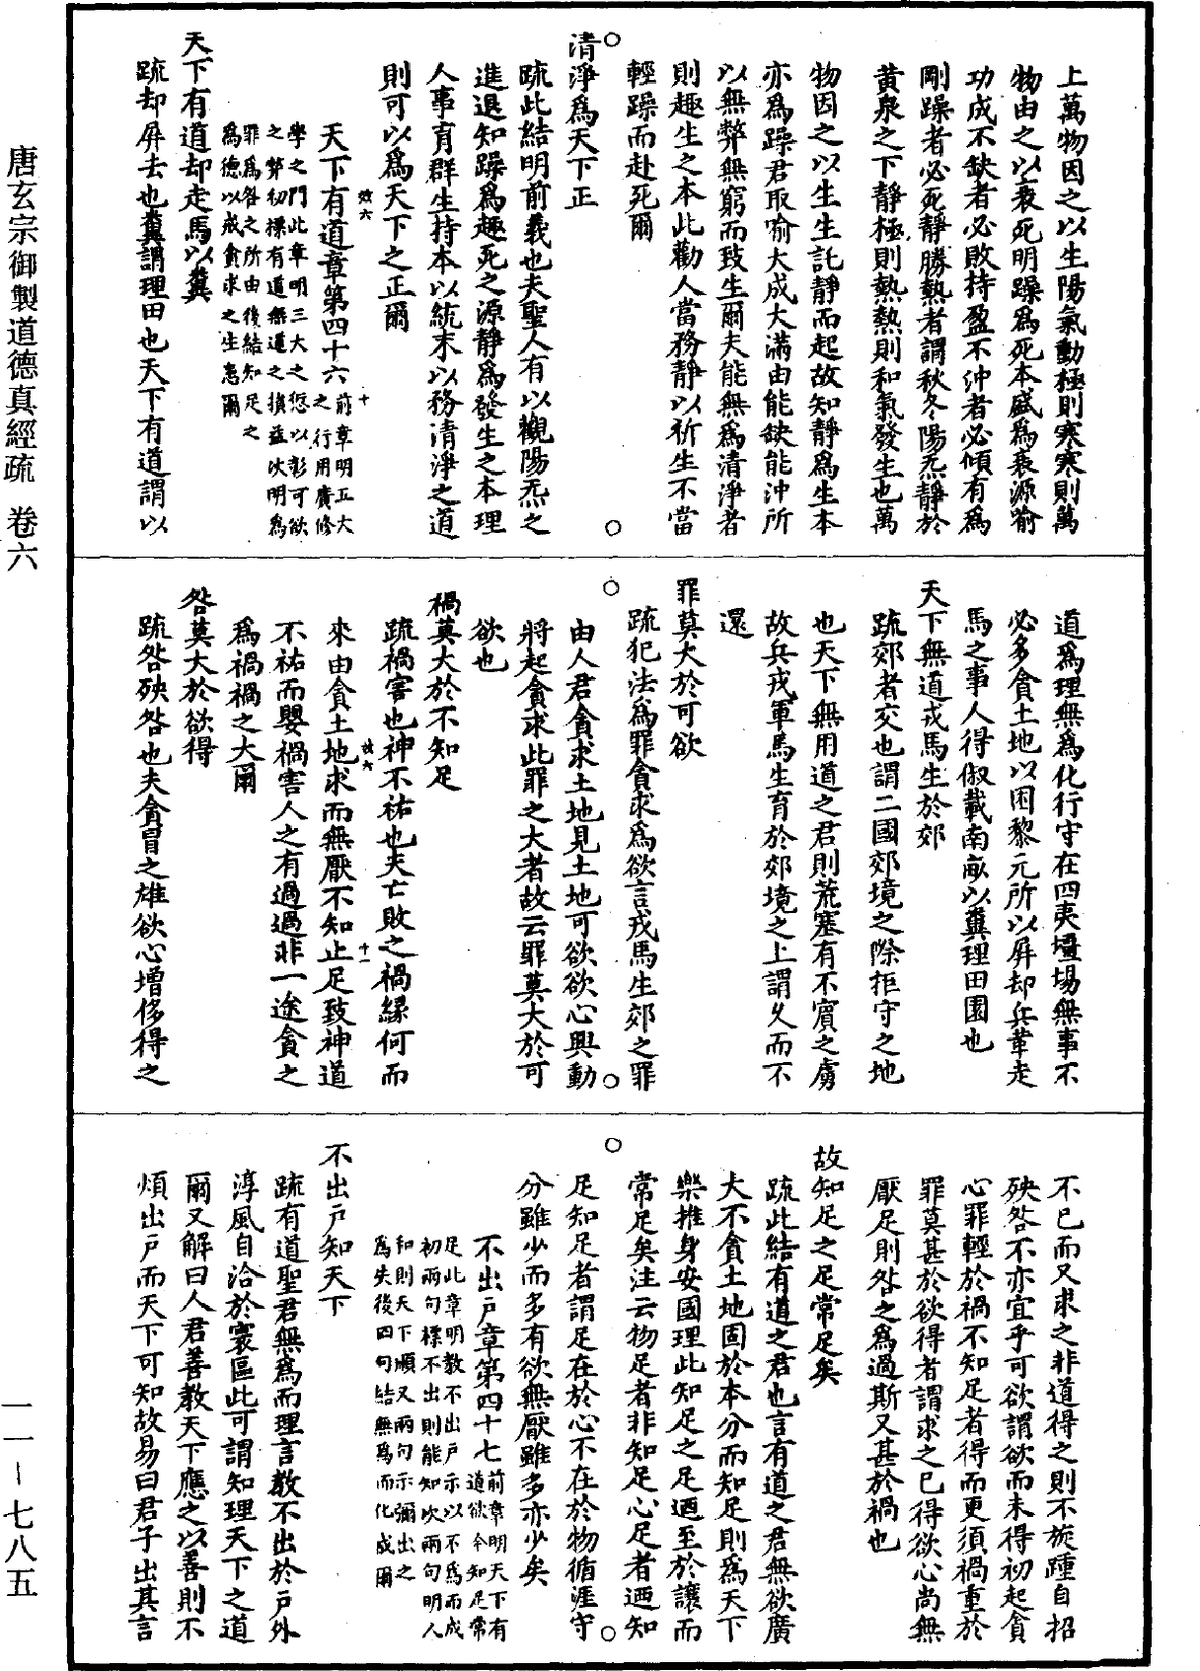 唐玄宗御製道德真經疏　卷六
上萬物因之以生陽氣動極則寒寒則萬
物由之以衰死明躁爲死本盛爲衰源喻
功成不缺者必敗持盈不沖者必傾有爲
剛躁者必死靜勝熱者謂秋冬陽炁靜於
黃泉之下靜極則熱熱則和氣發生也萬
物因之以生生託靜而起故知靜爲生本
亦爲躁君取喻大成大滿由能缺能沖所
以無弊無窮而致生爾夫能無爲清淨者
則趣生之本此勸人當務靜以祈生不當
輕躁而赴死爾
清淨爲天下正
疏此結明前義也夫聖人有以觀陽炁之
進退知躁爲趣死之源靜爲發生之本理
人事育群生持本以統末以務清淨之道
則可以爲天下之正爾
效六　十
天下有道章第四十六前章明正大
之行用廣修
學之門此章明三大之愆以彰可欲
之弊初標有道無道之損益次明爲
罪爲咎之所由後結知足之
爲德以戒貪求之生患爾
天下有道却走馬以糞
疏却屏去也糞謂理田也天下有道謂以
道爲理無爲化行守在四夷壃場無事不
必多貪土地以困黎元所以屏却兵革走
馬之事人得俶載南畝以糞理田園也
天下無道戎馬生於郊
疏郊者交也謂二國郊境之際拒守之地
也天下無用道之君則荒塞有不賓之虜
故兵戎軍馬生育於郊境之上謂久而不
還
罪莫大於可欲
疏犯法爲罪貪求爲欲言戎馬生郊之罪
由人君貪求土地見土地可欲欲心興動
將起貪求此罪之大者故云罪莫大於可
欲也
禍莫大於不知足
疏禍害也神不祐也夫亡敗之禍緣何而
來由貪土地求而無厭不知止足致神道
效六　十一
不祐而嬰禍害人之有過過非一途貪之
爲禍禍之大爾
咎莫大於欲得
疏咎殃咎也夫貪冒之雄欲心增侈得之
不已而又求之非道得之則不旋踵自招
殃咎不亦宜乎可欲謂欲而未得初起貪
心罪輕於禍不知足者得而更須禍重於
罪莫甚於欲得者謂求之已得欲心尚無
厭足則咎之爲過斯又甚於禍也
故知足之足常足矣
疏此結有道之君也言有道之君無欲廣
大不貪土地固於本分而知足則爲天下
樂推身安國理此知足之足迺至於讓而
常足矣注云物足者非知足心足者迺知
足知足者謂足在於心不在於物循涯守
分雖少而多有欲無厭雖多亦少矣
不出戶章第四十七前章明天下有
道欲令知足常
足此章明教不出戶示以不爲而成
初兩句標不出則能知次兩句明人
和則天下順又兩句示彌出之
爲失後四句結無爲而化成爾
不出戶知天下
疏有道聖君無爲而理言教不出於戶外
淳風自洽於寰區此可謂知理天下之道
爾又解曰人君善教天下應之以善則不
煩出戶而天下可知故易曰君子出其言
一一－七八五